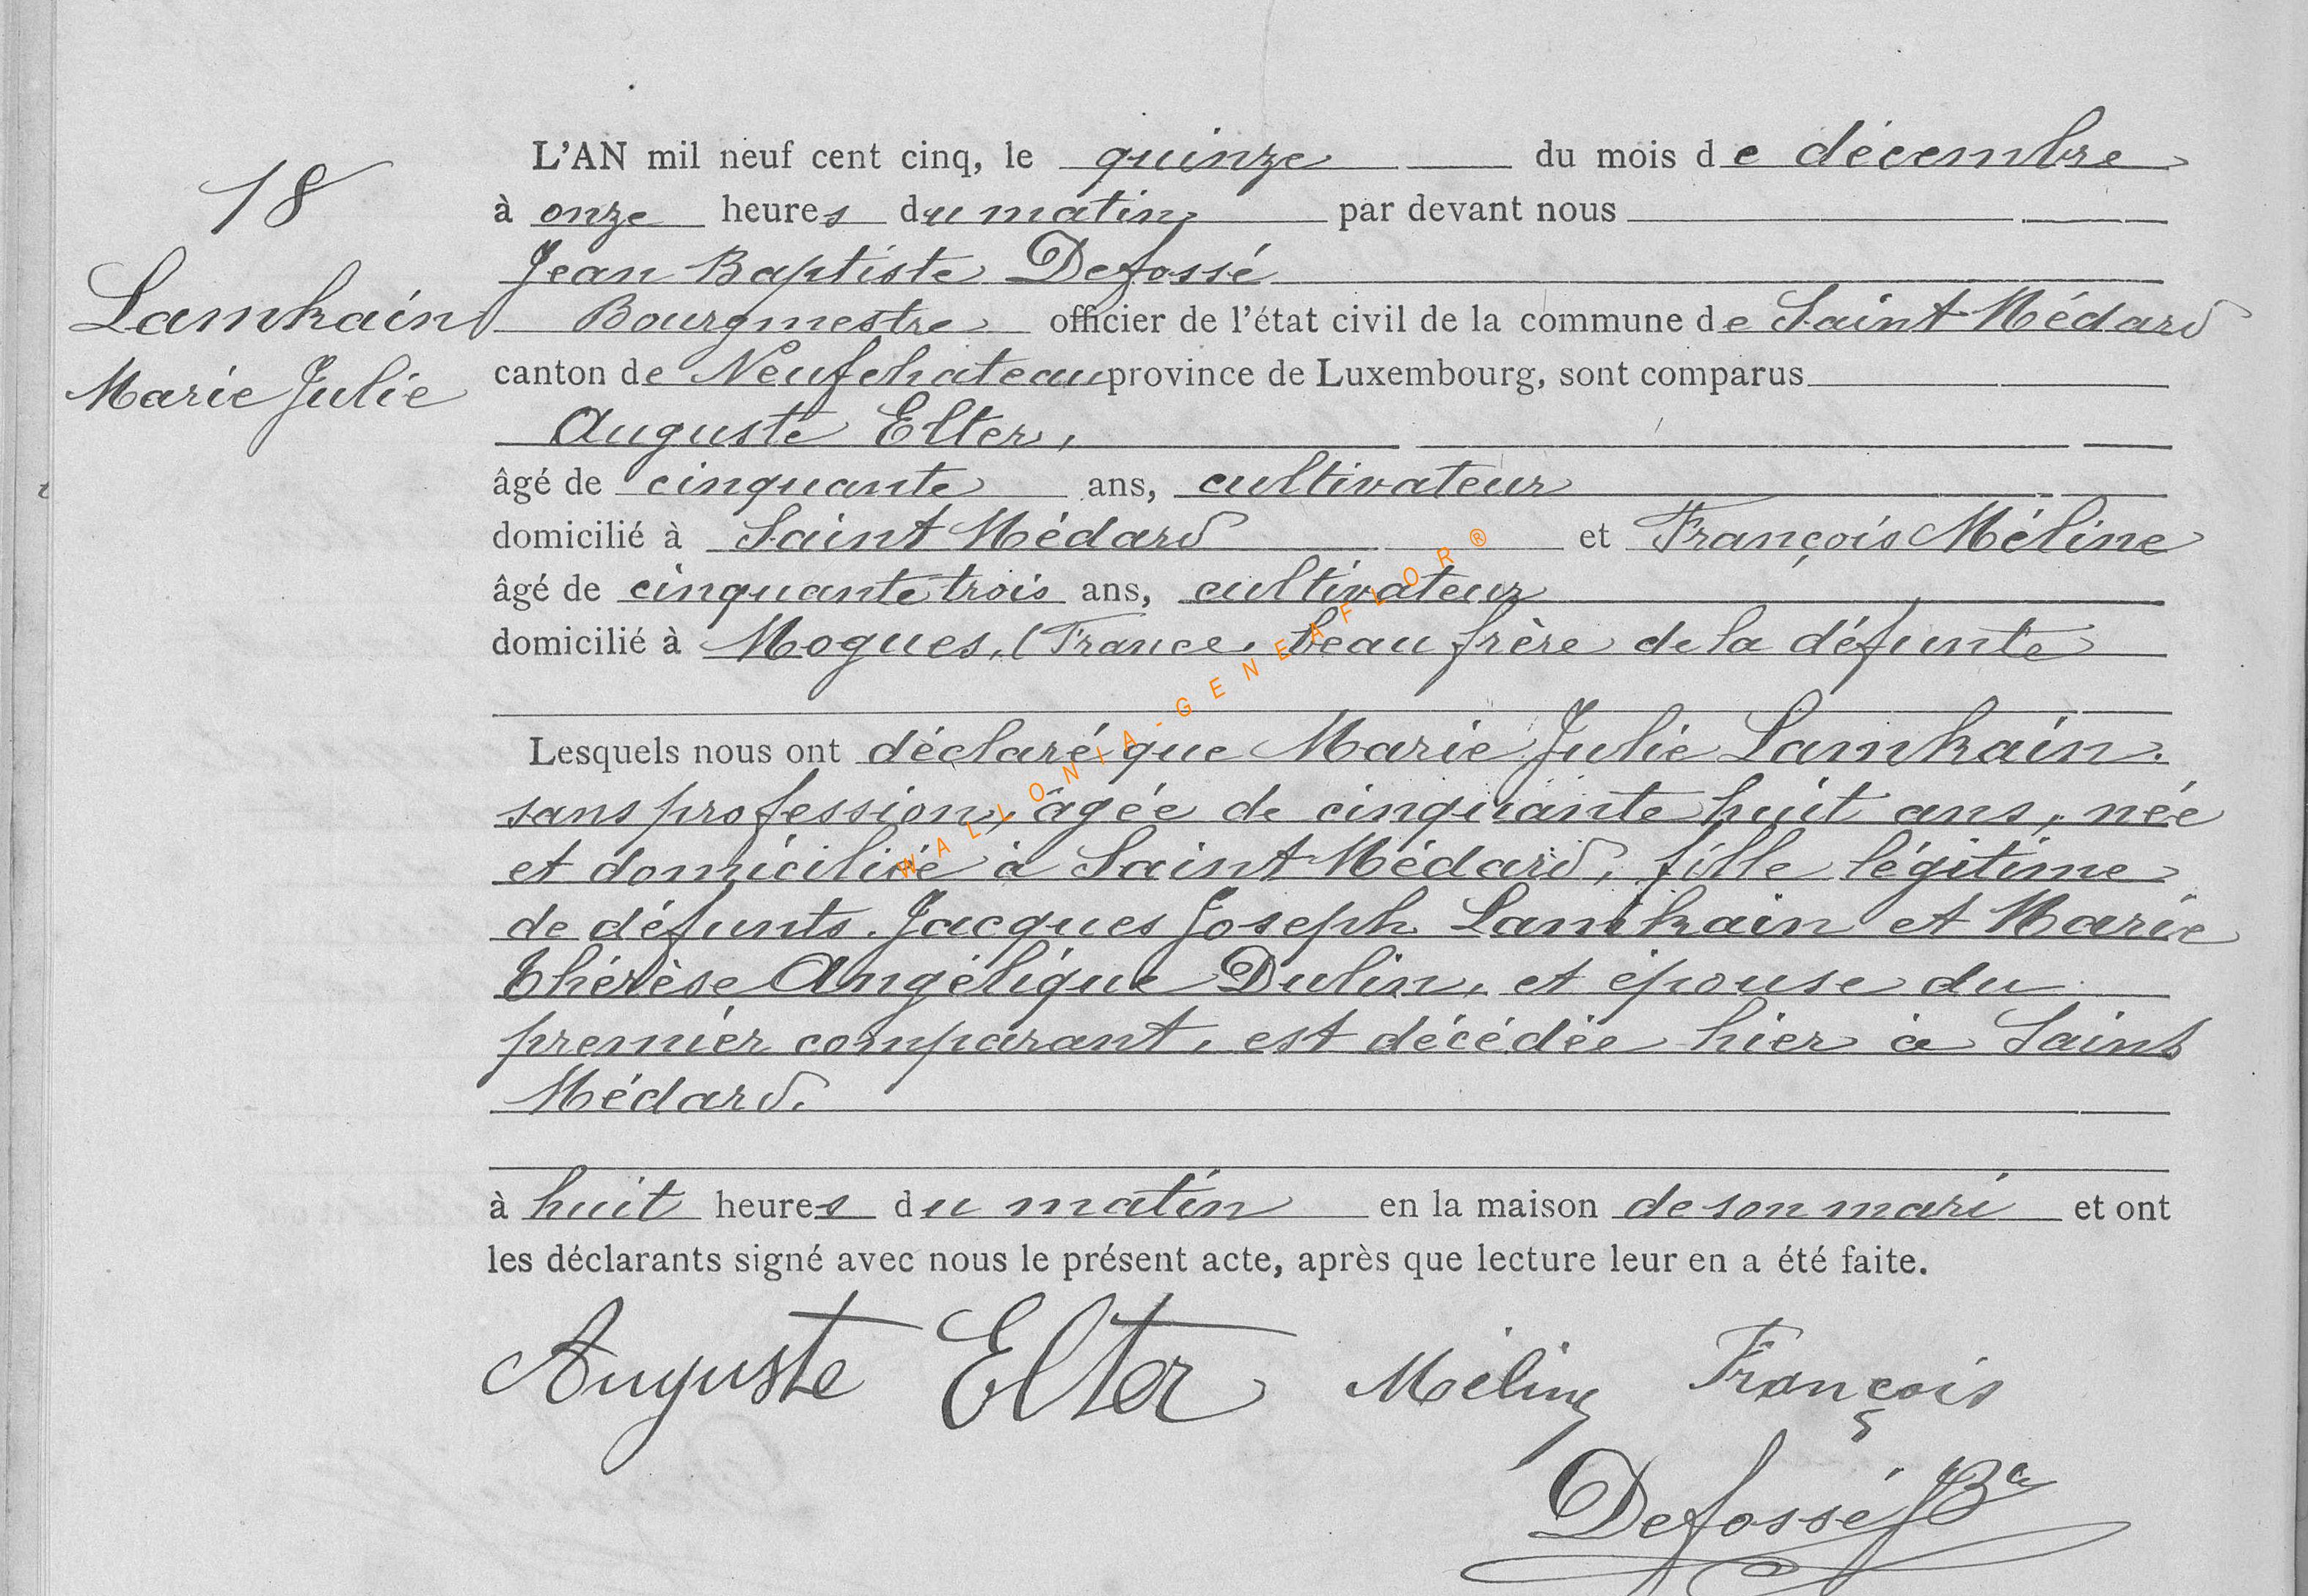 18
Lamkain
Marie Julie
L'AN mil neuf cent cinq, le quinze du mois de décembre
à onze heures du matin par devant nous
Jean Baptiste Defossé
Bourgmestre officier de l'état civil de la commune de Saint Médard
canton de Neufchateau province de Luxembourg, sont comparus
Auguste Elter,
âgé de cinquante ans, cultivateur
domicilié à Saint Médard et François Méline
âgé de cinquante trois ans, cultivateur
domicilié à Mogues, (France, beau frère de la défunte
Lesquels nous ont déclaré que Marie Julie Lamkain.
sans profession, âgée de cinquante huit ans, née
et domiciliée à Saint Médard, fille légitime
de défunts Jacques Joseph Lamkain et Marie
Thérèse Angélique Dulin, et épouse du
premier comparant, est décédée hier à Saint
Médard.
à huit heures du matin en la maison de son mari et ont
les déclarants signé avec nous le présent acte, après que lecture leur en a été faite.
Auguste Elter Méline François
Defossé JBte
WALLONIA-GENEAFLOR®